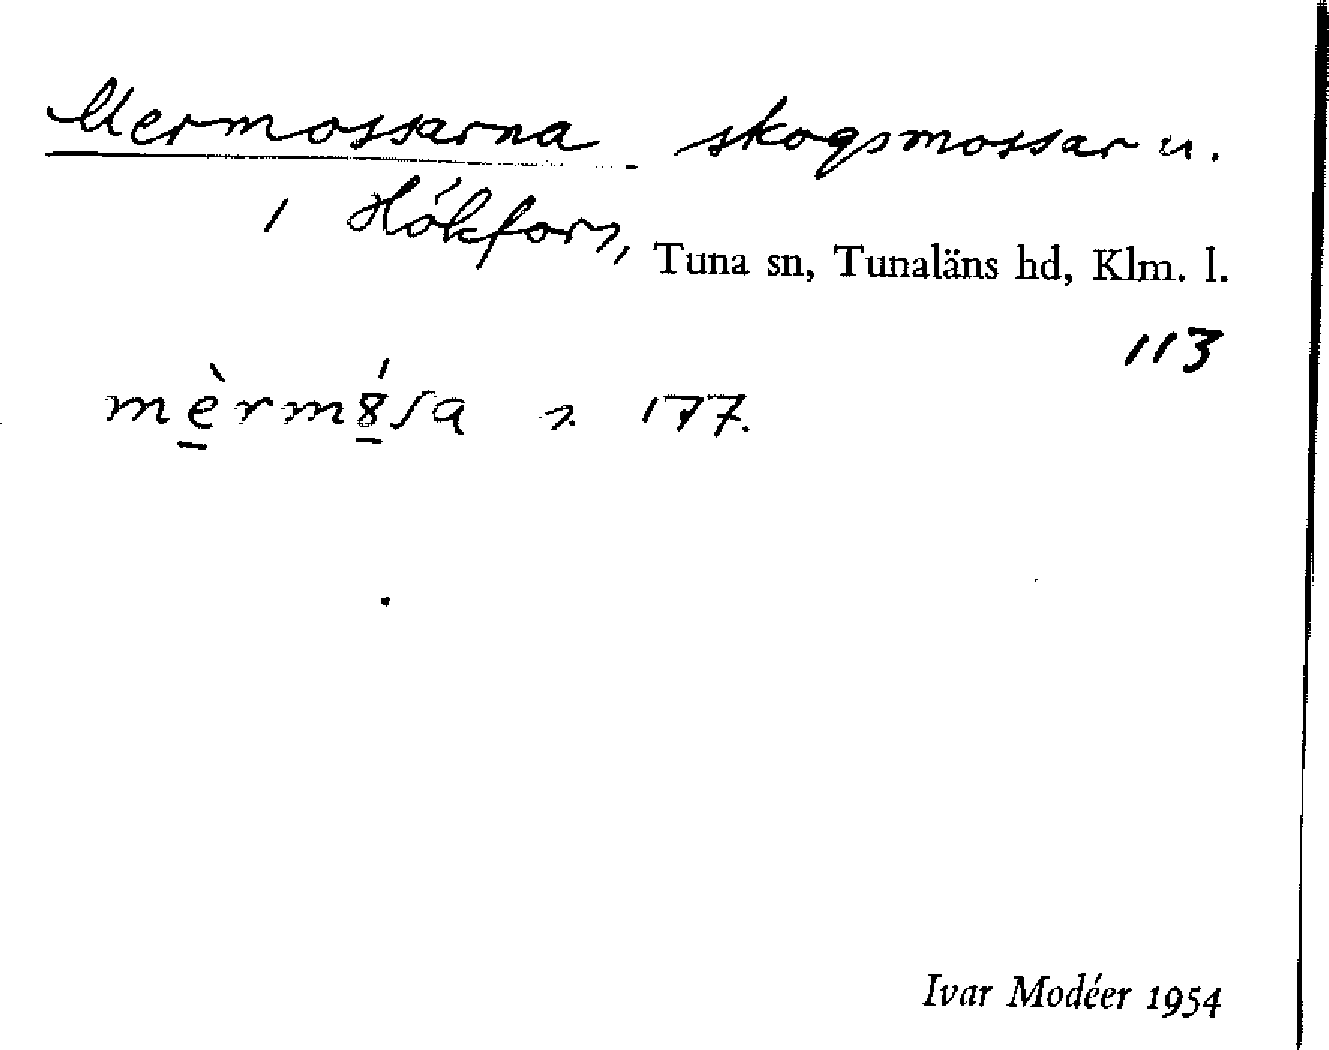 Mermossarna skogsmossar u.
1 Hökfors, Tuna sn, Tunaläns hd, Klm. l.
113
mè̱rmȣ̱́sa s. 177.
Ivar Modéer 1954